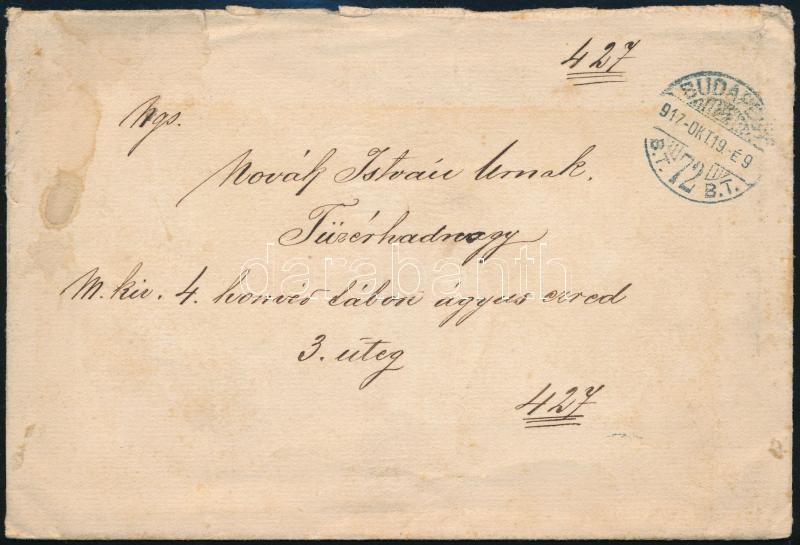 427
BUDAPEST
917-OKT.19.-É9
72
B.T. B.T.
Ngs.
Novák István Urnak.
Tüzérhadnagy
M. kir. 4. honvéd tábori ágyus ezred
3. üteg
427
darabanth